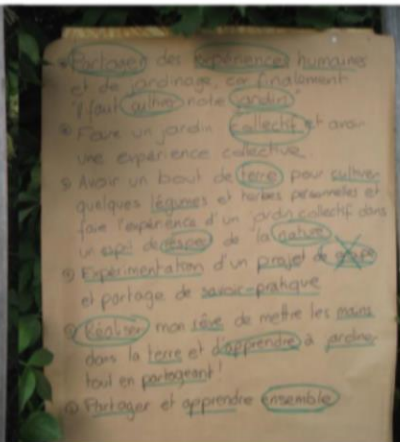 Partager des expériences humaines
et de jardinage, car finalement
"il faut cultiver notre jardin"
Faire un jardin collectif et avoir
une expérience collective.
Avoir un bout de terre pour cultiver
quelques légumes et herbes personnelles et
faire l'expérience d'un jardin collectif dans
un esprit de respect de la nature
Expérimentation d'un projet de groupe
et partage de savoir-pratique
Réaliser mon rêve de mettre les mains
dans la terre et d'apprendre à jardiner
tout en partageant !
Partager et apprendre ensemble